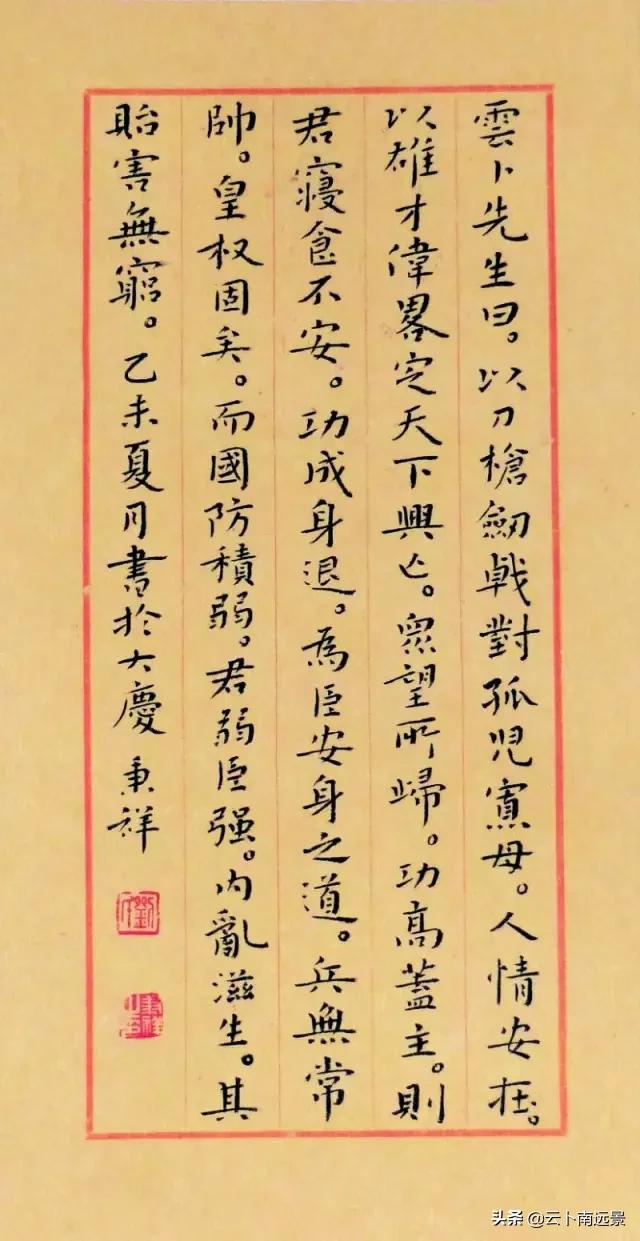 雲卜先生曰。以刀槍劒戟對孤児寡母。人情安在。
以雄才偉畧定天下興亡。眾望所歸。功高蓋主。則
君寢食不安。功成身退。為臣安身之道。兵無常
帥。皇权固矣。而國防積弱。君弱臣强。内亂滋生。其
貽害無窮。乙未夏月書於大慶 秉祥
劉
头条 @云卜南远景